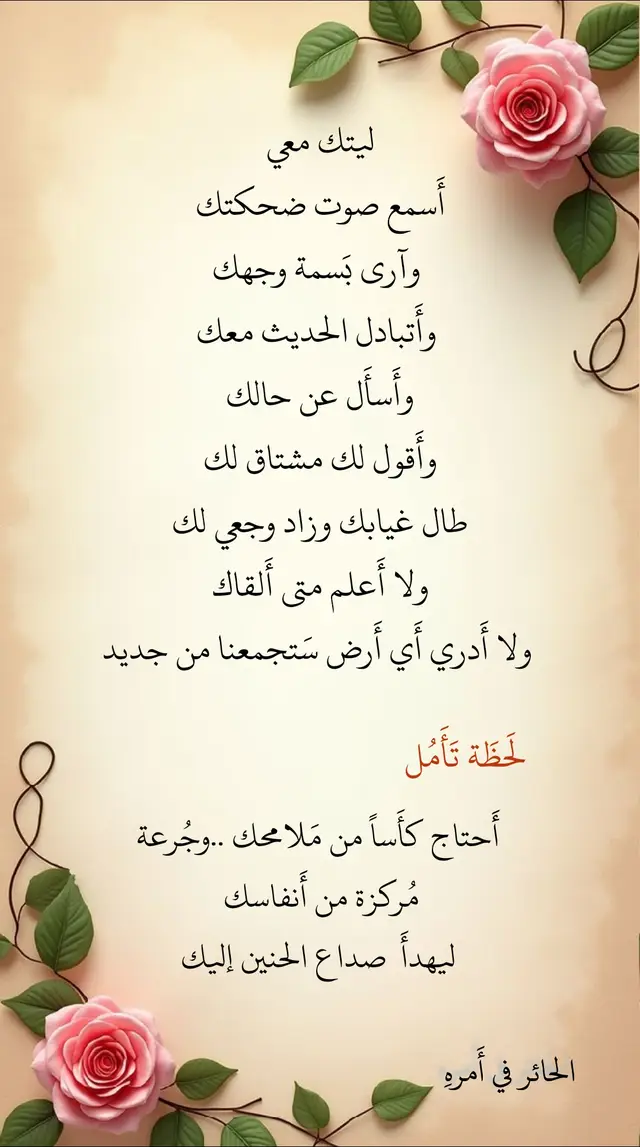 ليتك معي
أَسمع صوت ضحكتك
وآرى بَسمة وجهك
وأَتبادل الحديث معك
وأَسأَل عن حالك
وأَقول لك مشتاق لك
طال غيابك وزاد وجعي لك
ولا أَعلم متى أَلقاك
ولا أَدري أَي أَرض سَتجمعنا من جديد
لَحظَة تَأَمُل
أَحتاج كأَساً من مَلامحك ..وجُرعة
مُركزة من أَنفاسك
ليهدأَ صداع الحنين إليك
الحائر في أَمرهِ